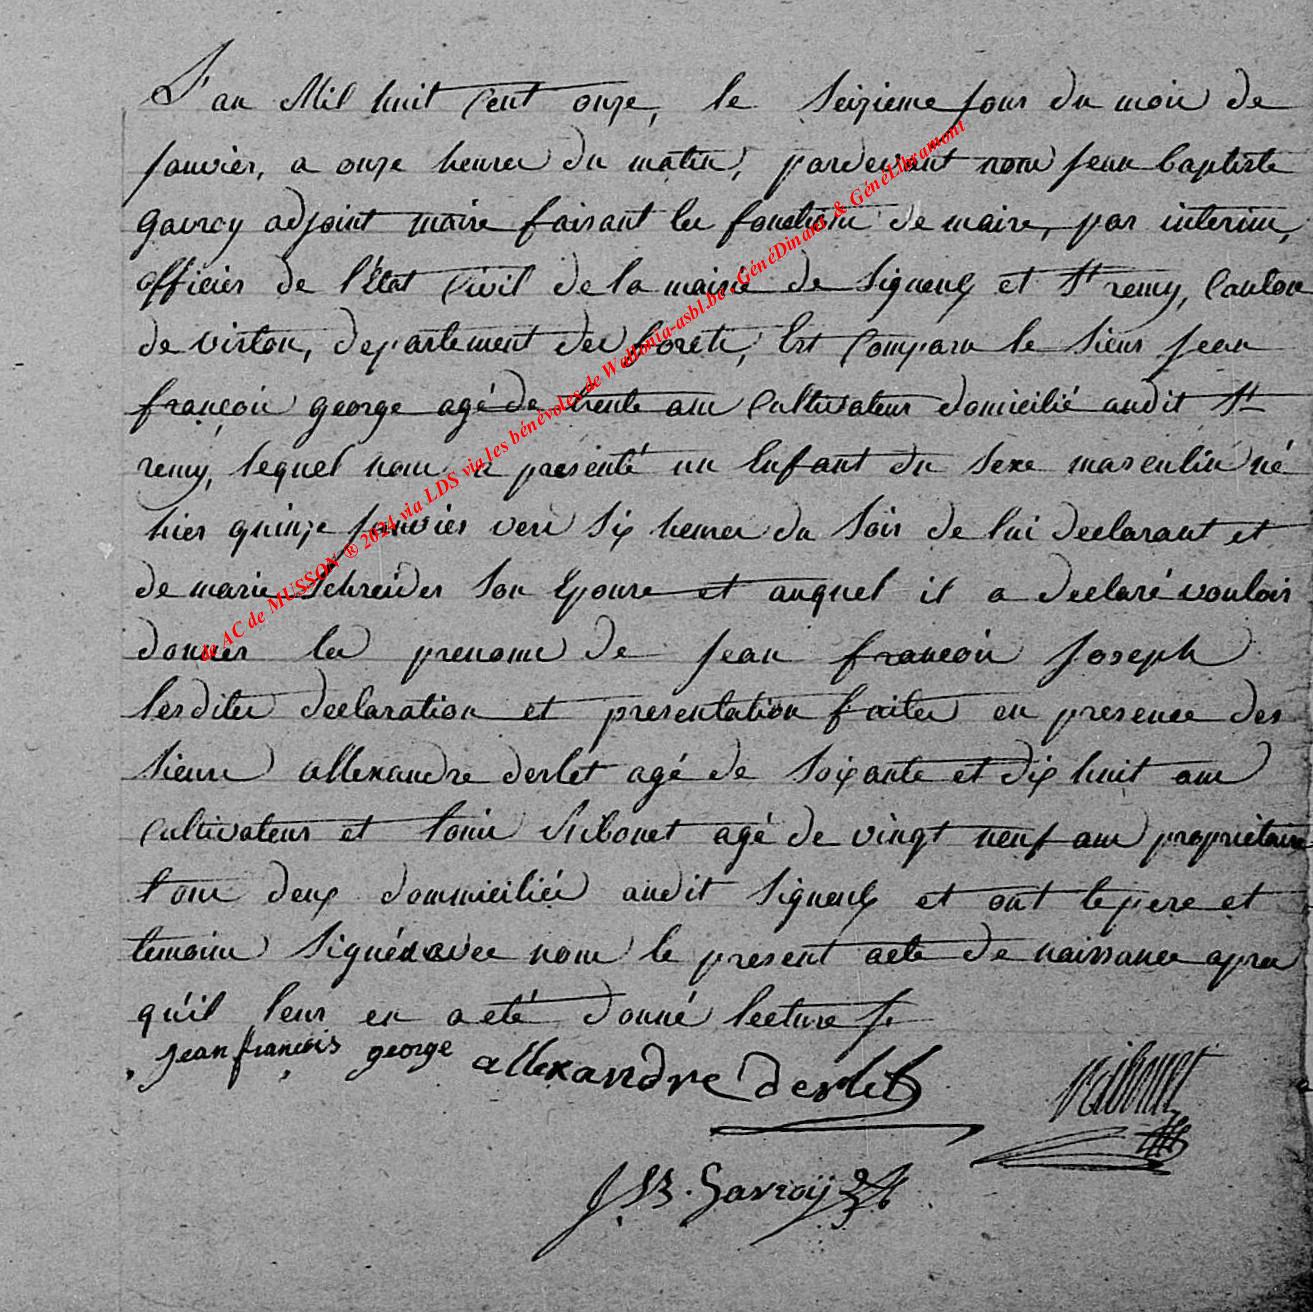 L'an Mil huit Cent onze, le Seizieme jour du mois de
janvier, a onze heures du matin, pardevant nous jean baptiste
gavroy adjoint maire faisant les fonctions de maire, par interim,
officier de l'État Civil de la mairie de Signeulx et St remy, Canton
de virton, departement des forets, Est Comparu le Sieur jean
françois george agé de trente ans Cultivateur domicilié audit St
remy, lequel nous a presenté un Enfant du Sexe masculin né
hier quinze janvier vers Six heures du Soir de lui declarant et
de marie Schreider Son Epouse et auquel il a declaré vouloir
donner les prenoms de jean françois joseph
lesdites declaration et presentation faites en presence des
Sieurs allexandre derlet agé de Soixante et dix huit ans
Cultivateur et louis ribonet agé de vingt neuf ans propriétaire
tous deux dommiciliés audit Signeulx et ont le pere et
temoins Signés avec nous le present acte de naissance apres
qu'il leur en a eté donné lecture
jean françois george allexandre derlet
JB. Gavroÿ
© AC de MUSSON ® 2024 via LDS via les bénévoles de Wallonia-asbl.be, GénéDinant & GénéLibramont